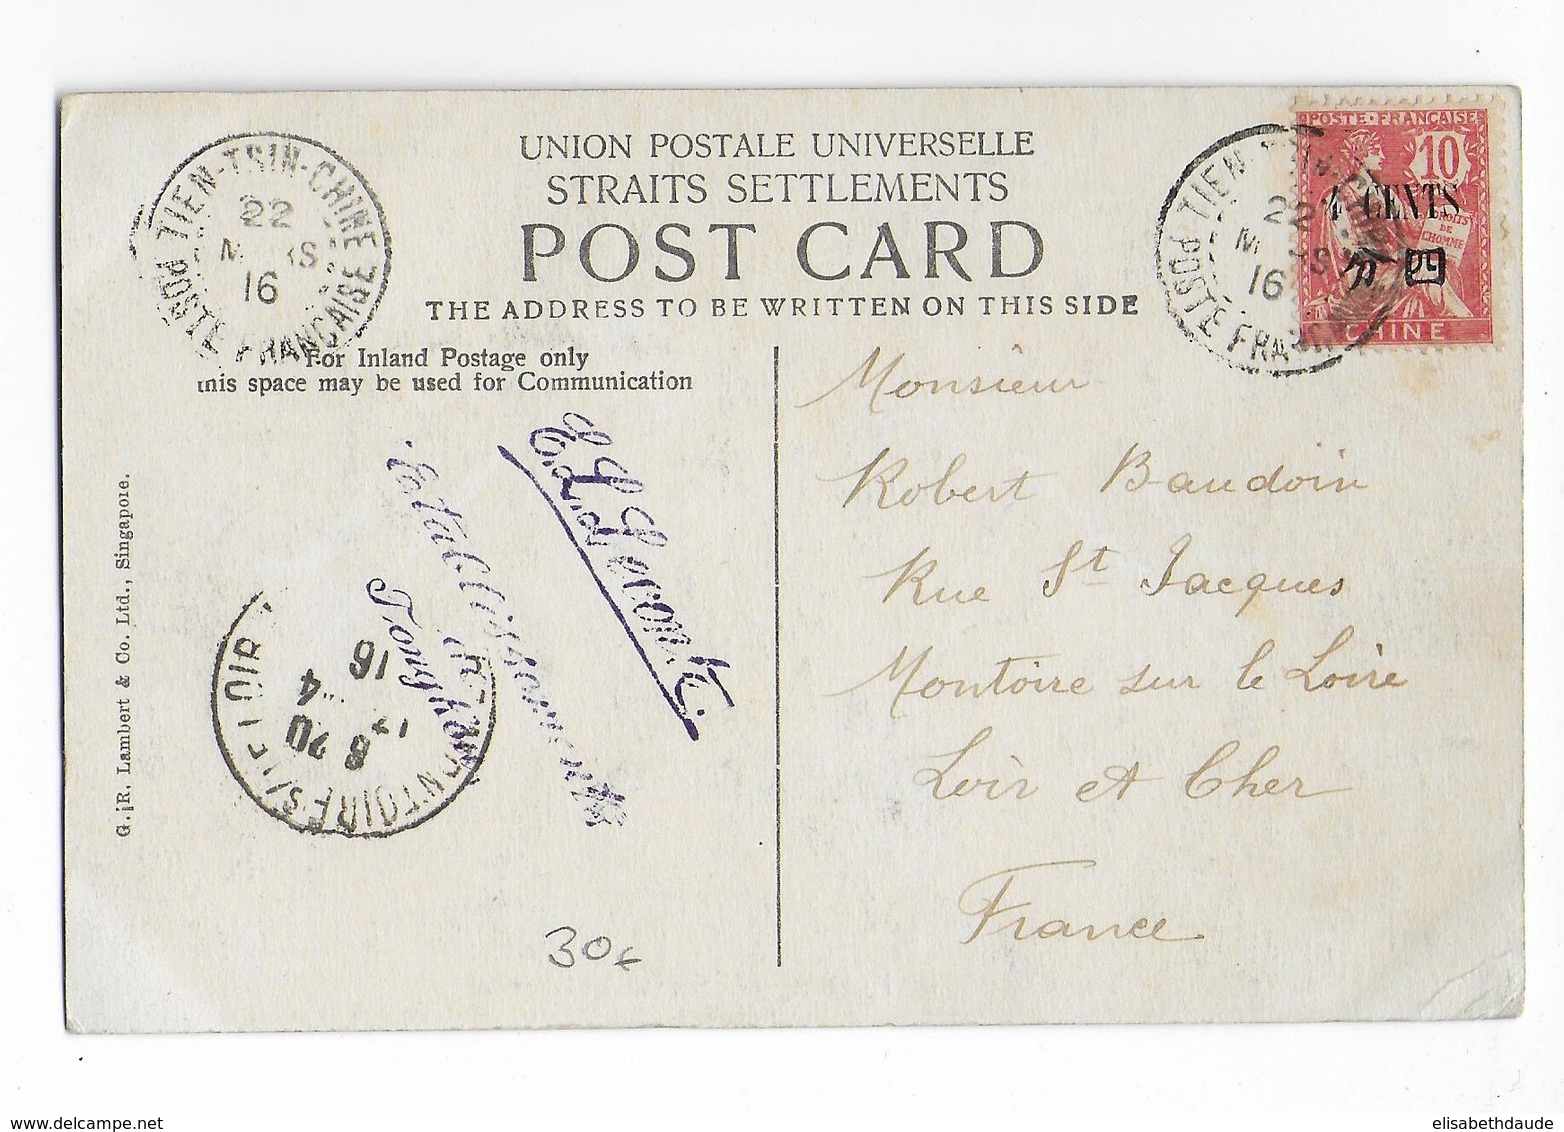 UNION POSTALE UNIVERSELLE
STRAITS SETTLEMENTS
POST CARD
THE ADDRESS TO BE WRITTEN ON THIS SIDE
For Inland Postage only
this space may be used for Communication
TIEN-TSIN-CHINE
22
MARS
16
POSTE FRANÇAISE
TIEN-TSIN-CHINE
22
MARS
16
POSTE FRANÇAISE
POSTE·FRANÇAISE
10
4 CENTS
DROITS
DE
L'HOMME
分四
CHINE
Monsieur
Robert Baudoin
Rue St Jacques
Montoire sur le Loire
Loir et Cher
France
E.L. Lecomte.
Etablissements
Tongkou
MONTOIRE S/LE LOIR
8
4
16
G. R. Lambert & Co. Ltd., Singapore.
30€
elisabethdaude